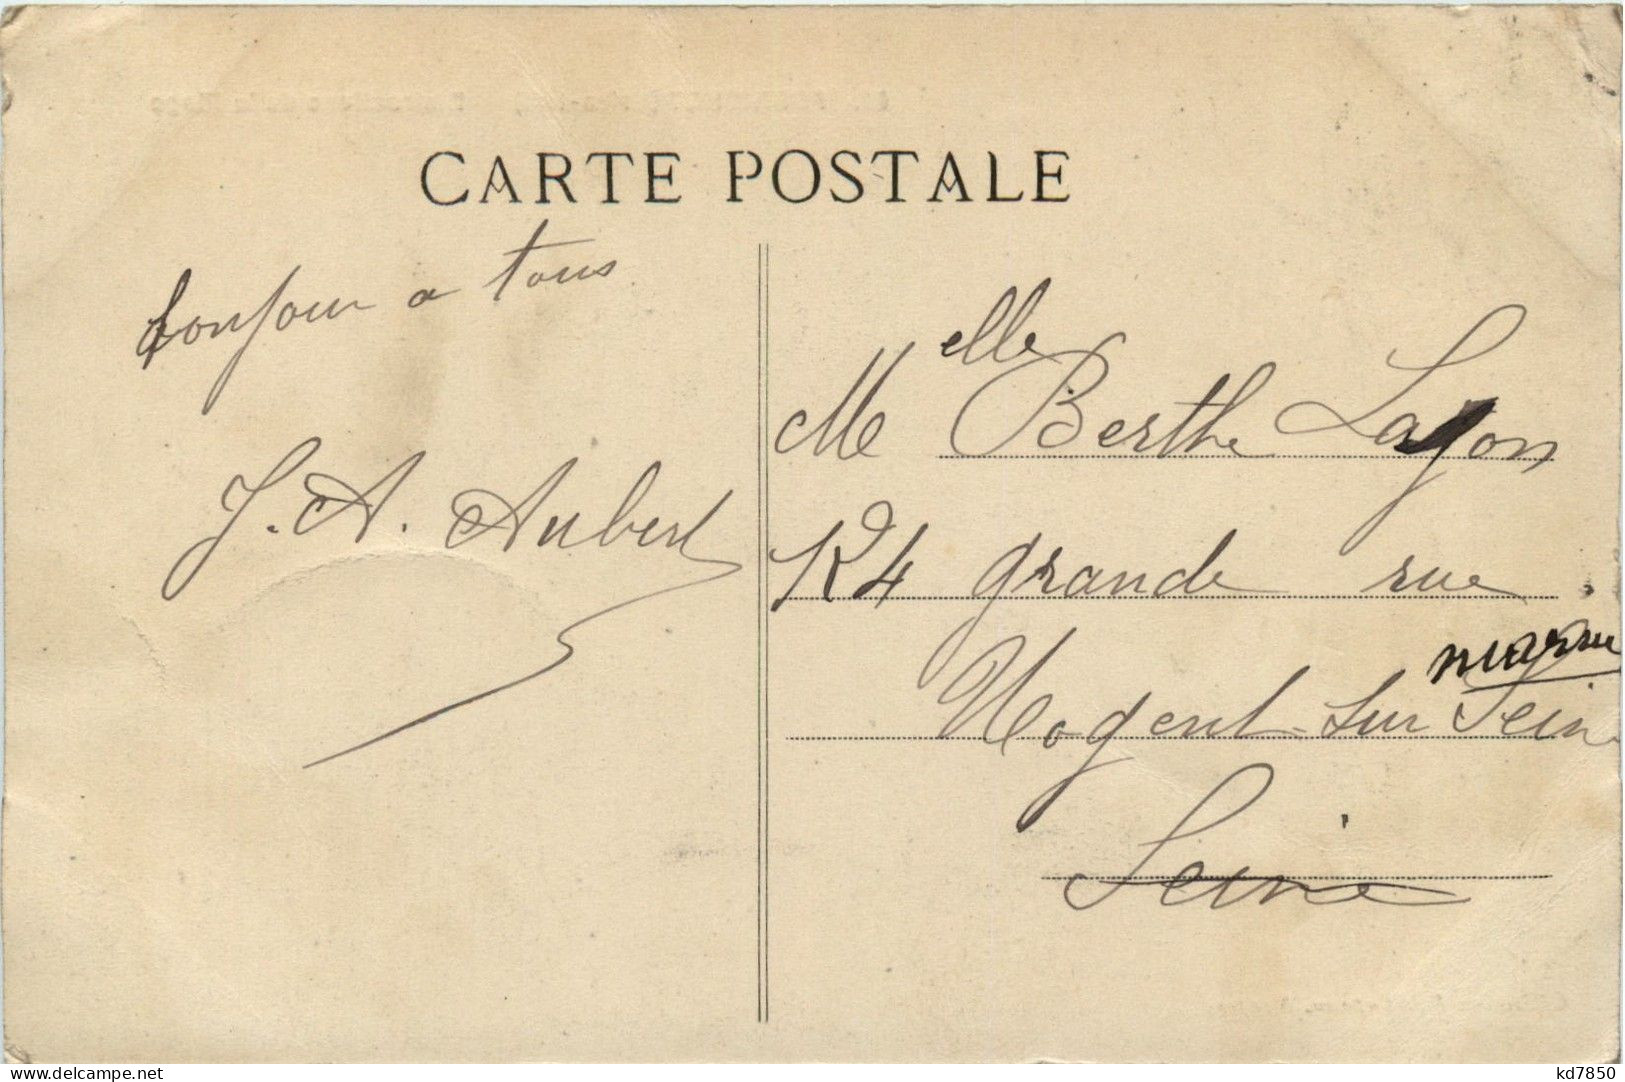 CARTE POSTALE
bonjour a tous
J. A. Aubert
Melle Berthe Layon
124 grande rue
marne
Nogent-sur Seine
Seine
delcampe.net
kd7850